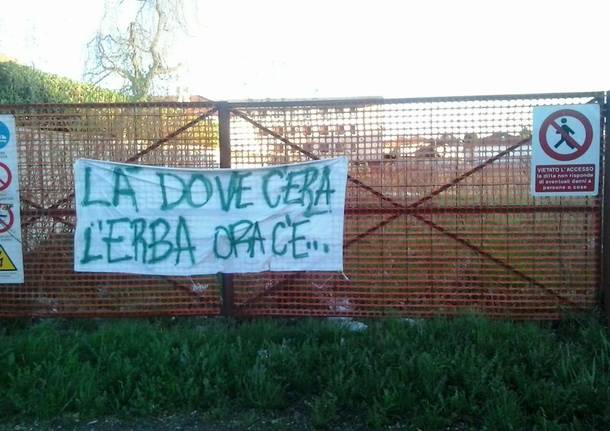 LA' DOVE C'ERA
L'ERBA ORA C'E'...
VIETATO L'ACCESSO
la ditta non risponde
di eventuali danni a
persone o cose